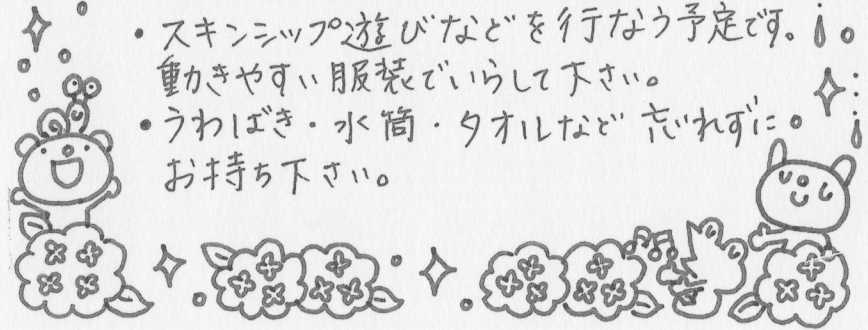 ・スキンシップ遊びなどを行なう予定です。
動きやすい服装でいらして下さい。
・うわばき・水筒・タオルなど忘れずに
お持ち下さい。